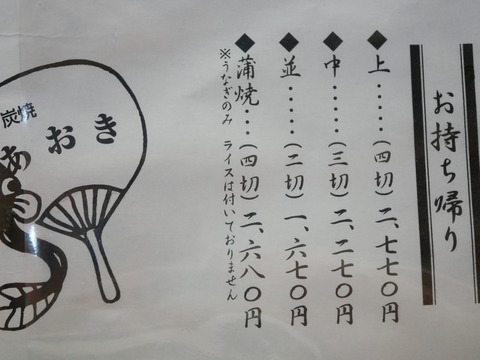 お持ち帰り
◆上……(四切)二、七七〇円
◆中……(三切)二、二七〇円
◆並……(二切)一、六七〇円
◆蒲焼…(四切)二、六八〇円
※うなぎのみ ライスは付いておりません
炭焼
あおき